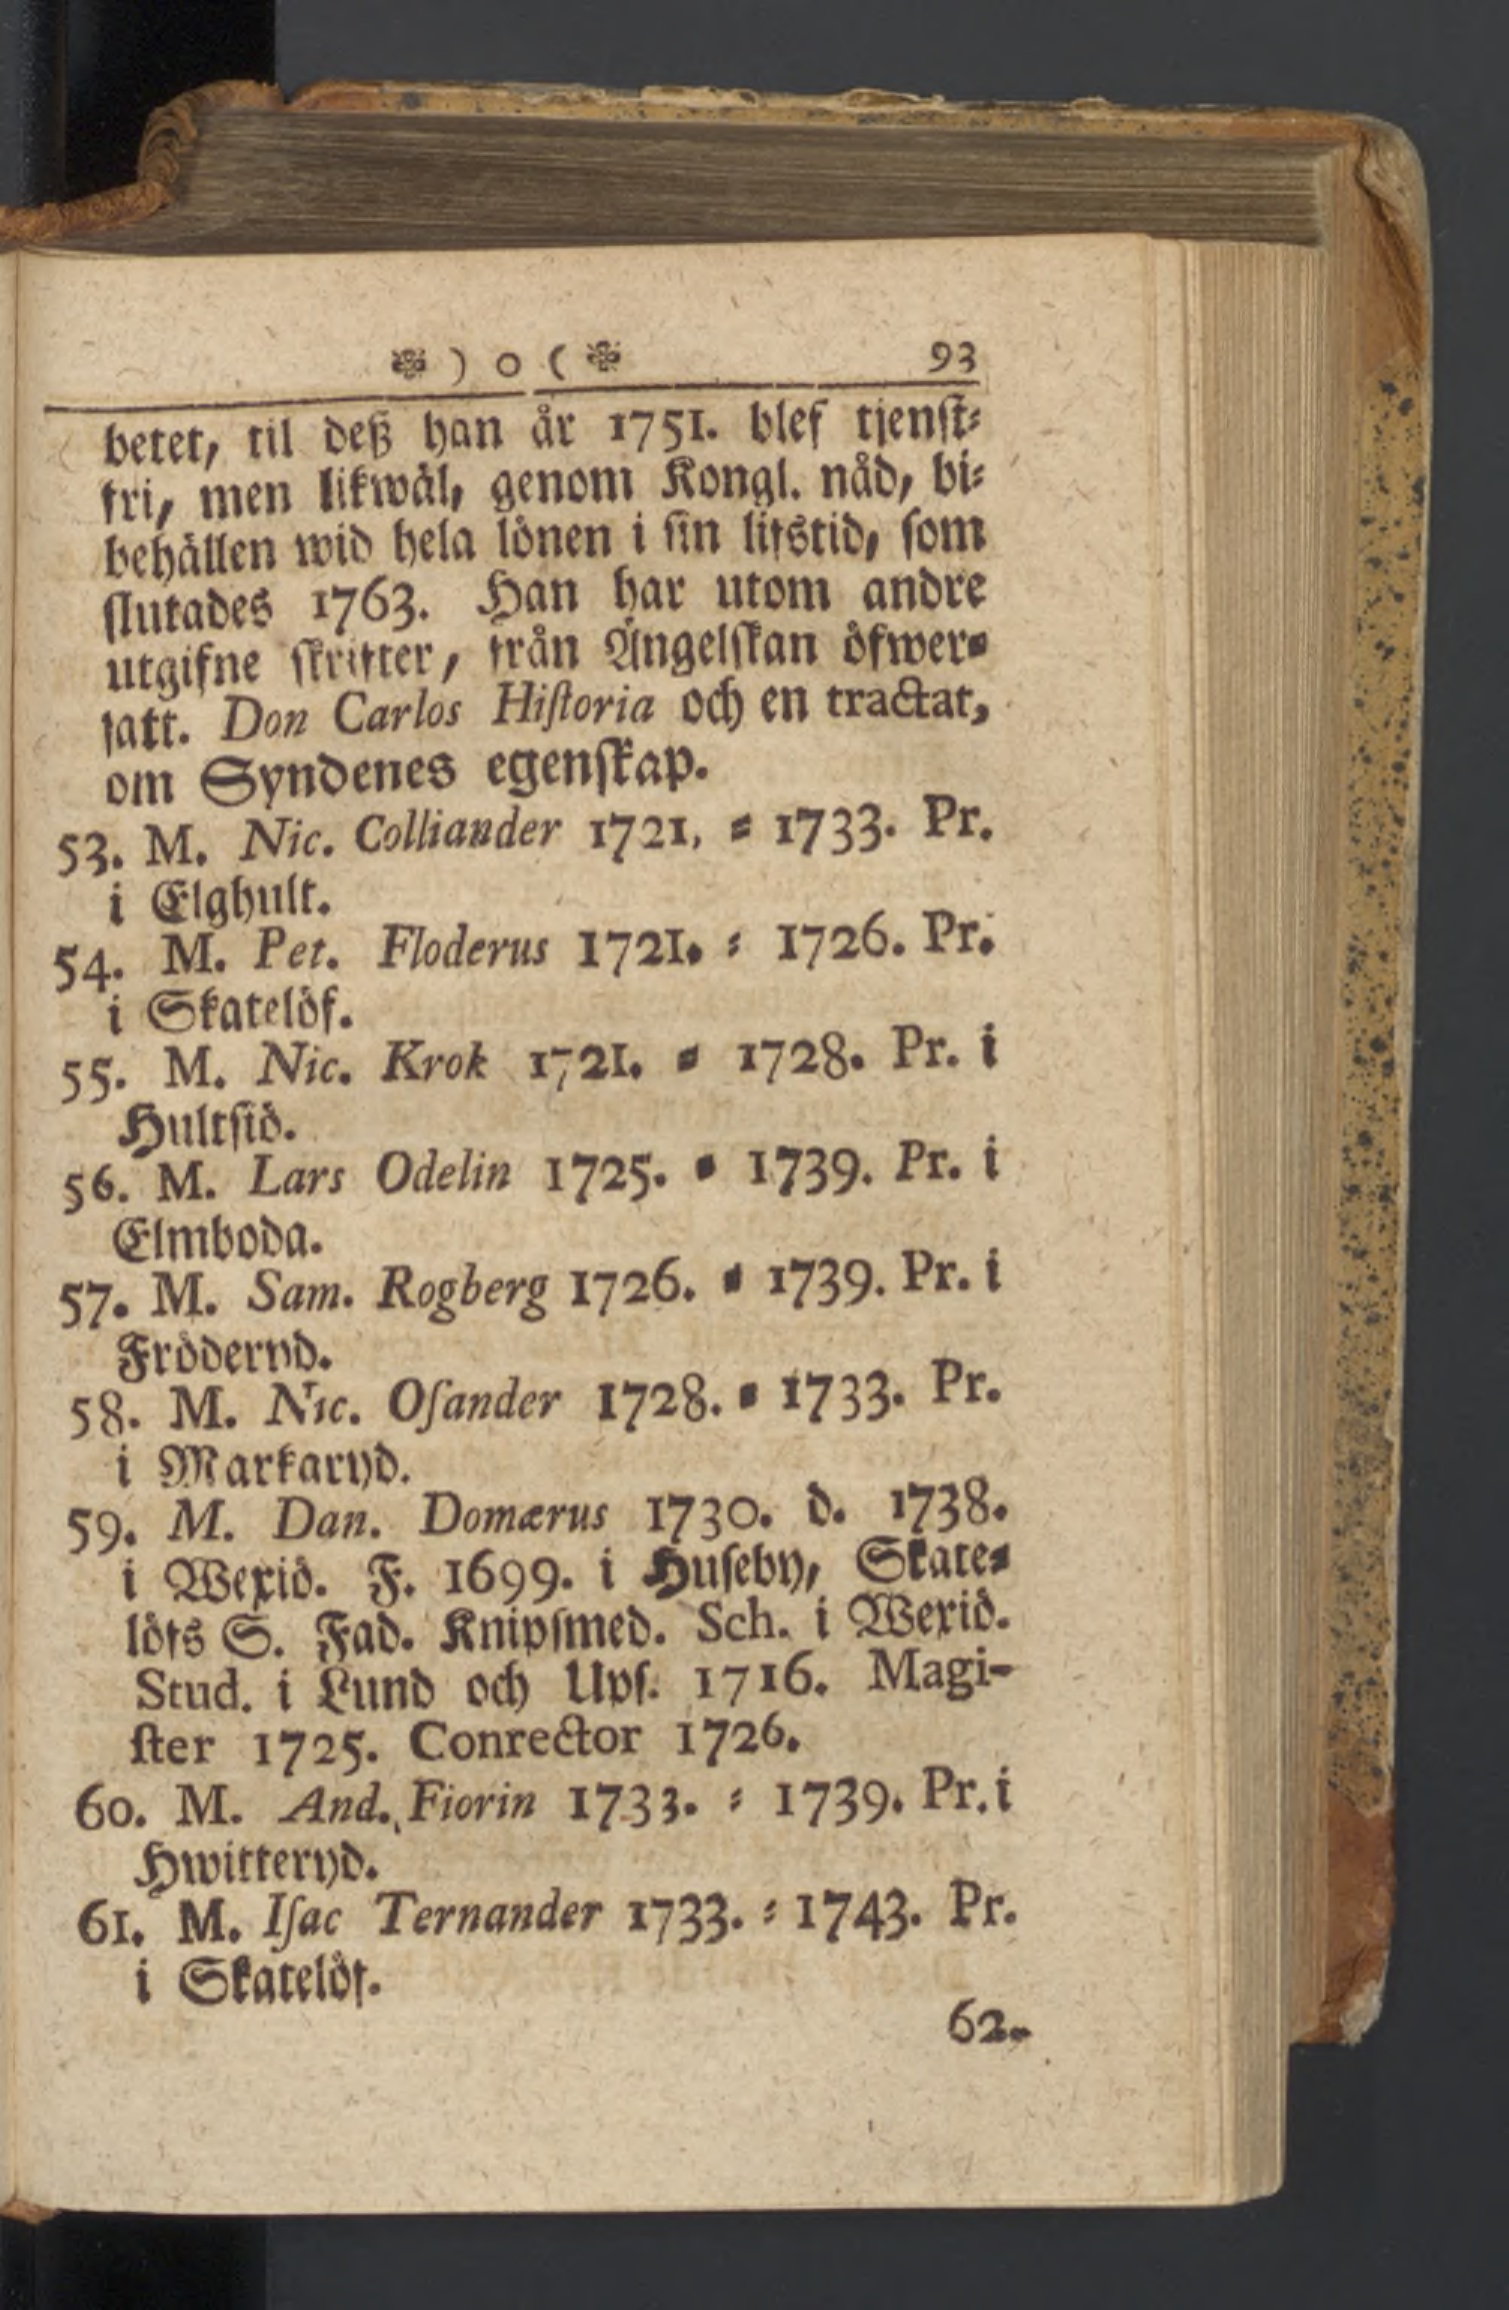 ❉ ) o ( ❉ 93
betet, til deß han år 1751. blef tjenst=
fri, men likwäl, genom Kongl. nåd, bi=
behållen wid hela lönen i sin lifstid, som
slutades 1763. Han har utom andre
utgifne skrifter, från Ängelskan öfwer=
satt. Don Carlos Historia och en tractat,
om Syndenes egenskap.
53. M. Nic. Colliander 1721. = 1733. Pr.
i Elghult.
54. M. Pet. Floderus 1721. = 1726. Pr.
i Skatelöf.
55. M. Nic. Krok 1721. = 1728. Pr. i
Hultsiö.
56. M. Lars Odelin 1725. = 1739. Pr. i
Elmboda.
57. M. Sam. Rogberg 1726. = 1739. Pr. i
Fröderyd.
58. M. Nic. Osander 1728. = 1733. Pr.
i Markaryd.
59. M. Dan. Domærus 1730. d. 1738.
i Wexiö. F. 1699. i Huseby, Skate=
löfs S. Fad. Knipsmed. Sch. i Wexiö.
Stud. i Lund och Ups. 1716. Magi-
ster 1725. Conrector 1726.
60. M. And. Fiorin 1733. = 1739. Pr. i
Hwitteryd.
61. M. Isac Ternander 1733. = 1743. Pr.
i Skatelöf.
62.